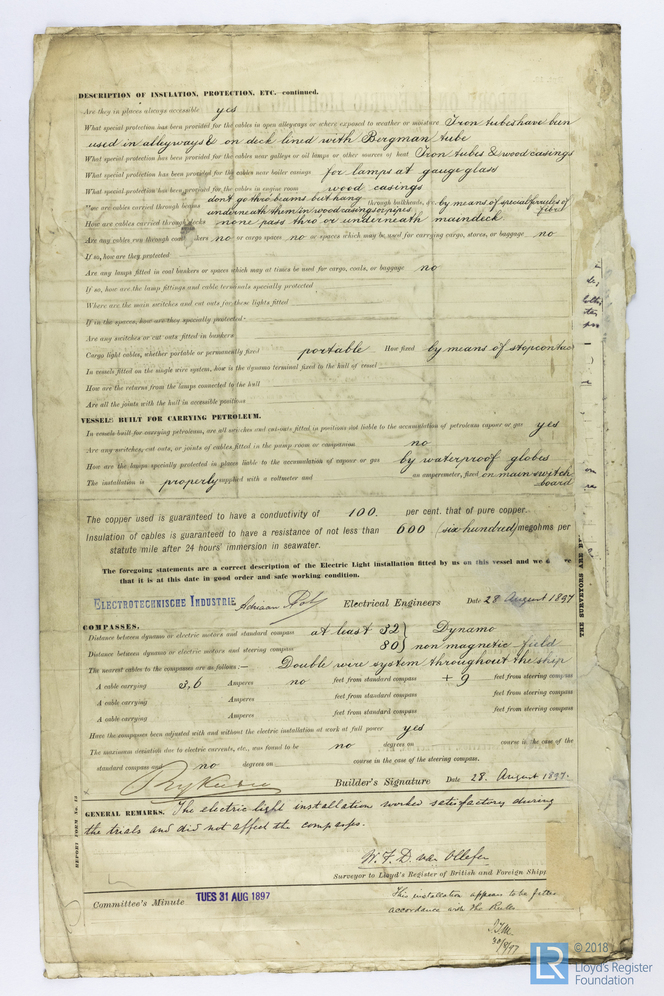 DESCRIPTION OF INSULATION, PROTECTION, ETC.-continued.
Are they in places always accessible yes
What special protection has been provided for the cables in open alleyways or where exposed to weather or moisture Iron tubes have been
used in alleyways & on deck lined with Bergman tube
What special protection has been provided for the cables near galleys or oil lamps or other sources of heat Iron tubes & wood casings
What special protection has been provided for the cables near boiler casings for lamps at gauge glass
What special protection has been provided for the cables in engine room wood casings
How are cables carried through beams don't go thro' beams but hang through bulkheads, &c. by means of special ferrules of
underneath them in wood casings or pipes fibre
How are cables carried through decks none pass thro' or underneath maindeck
Are any cables run through coal bunkers no or cargo spaces no or spaces which may be used for carrying cargo, stores, or baggage no
If so, how are they protected
Are any lamps fitted in coal bunkers or spaces which may at times be used for cargo, coals, or baggage no
If so, how are the lamp fittings and cable terminals specially protected
Where are the main switches and cut outs for these lights fitted
If in the spaces, how are they specially protected
Are any switches or cut outs fitted in bunkers
Cargo light cables, whether portable or permanently fixed portable How fixed by means of stopcontac
In vessels fitted on the single wire system, how is the dynamo terminal fixed to the hull of vessel
How are the returns from the lamps connected to the hull
Are all the joints with the hull in accessible positions
VESSELS BUILT FOR CARRYING PETROLEUM.
In vessels built for carrying petroleum, are all switches and cut-outs fitted in positions not liable to the accumulation of petroleum vapour or gas yes
Are any switches, cut outs, or joints of cables fitted in the pump room or companion no
How are the lamps specially protected in places liable to the accumulation of vapour or gas by waterproof globes
The installation is properly supplied with a voltmeter and an amperemeter, fixed on main switch
board
The copper used is guaranteed to have a conductivity of 100. per cent. that of pure copper.
Insulation of cables is guaranteed to have a resistance of not less than 600 (six hundred) megohms per
statute mile after 24 hours' immersion in seawater.
The foregoing statements are a correct description of the Electric Light installation fitted by us on this vessel and we
that it is at this date in good order and safe working condition.
ELECTROTECHNISCHE INDUSTRIE Adriaan Electrical Engineers Date 28 August 1897
COMPASSES.
Distance between dynamo or electric motors and standard compass at least 32 } Dynamo
Distance between dynamo or electric motors and steering compass 80 } non magnetic field
The nearest cables to the compasses are as follows:— Double wire system throughout the ship
A cable carrying 3,6 Amperes no feet from standard compass + 9 feet from steering compass
A cable carrying Amperes feet from standard compass feet from steering compass
A cable carrying Amperes feet from standard compass feet from steering compass
Have the compasses been adjusted with and without the electric installation at work at full power yes
The maximum deviation due to electric currents, etc., was found to be no degrees on course in the case of the
standard compass and no degrees on course in the case of the steering compass.
Builder's Signature Date 28. August 1897.
GENERAL REMARKS. The electric light installation worked satisfactory during
the trials and did not affect the compasses.
W. F. D. van Ollefen
Surveyor to Lloyd's Register of British and Foreign Shipp
Committee's Minute TUES 31 AUG 1897
This installation appears to be fitted
accordance with the Rules
30/8/97
REPORT FORM No. 13
THE SURVEYORS ARE
LR © 2018
Lloyd's Register
Foundation